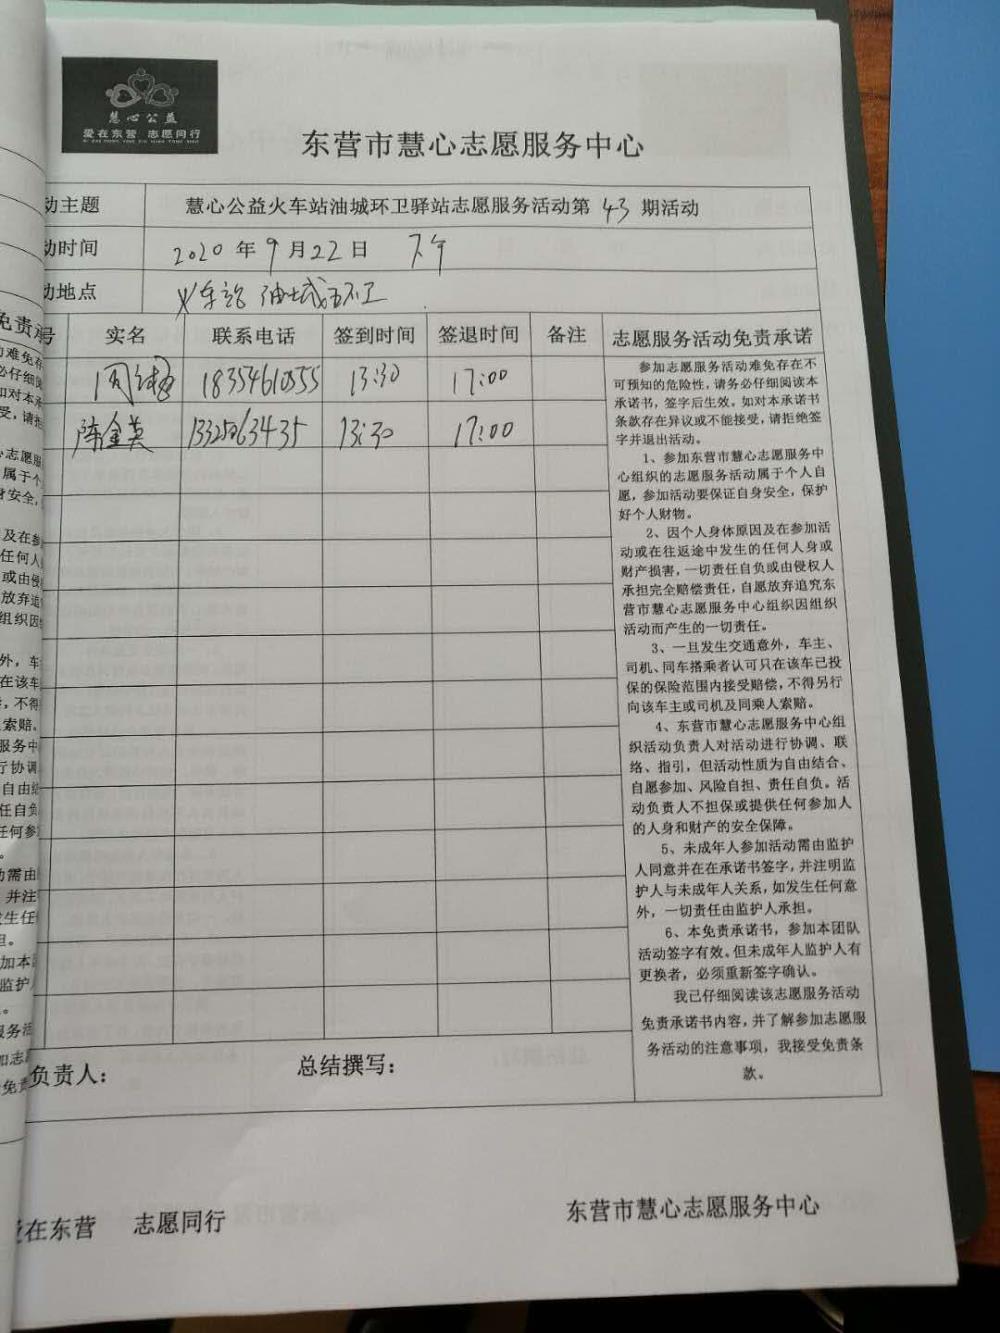 慧心公益
爱在东营 志愿同行
东营市慧心志愿服务中心
动主题 慧心公益火车站油城环卫驿站志愿服务活动第 43 期活动
动时间 2020 年 9 月 22 日 下午
动地点 火车站 油城环卫
号 实名 联系电话 签到时间 签退时间 备注 志愿服务活动免责承诺
18354610555 13:30 17:00
陈金英 13:30 17:00
参加志愿服务活动难免存在不
可预知的危险性，请务必仔细阅读本
承诺书，签字后生效。如对本承诺书
条款存在异议或不能接受，请拒绝签
字并退出活动。
1、参加东营市慧心志愿服务中
心组织的志愿服务活动属于个人自
愿，参加活动要保证自身安全，保护
好个人财物。
2、因个人身体原因及在参加活
动或在往返途中发生的任何人身或
财产损害，一切责任自负或由侵权人
承担完全赔偿责任，自愿放弃追究东
营市慧心志愿服务中心组织因组织
活动而产生的一切责任。
3、一旦发生交通意外，车主、
司机、同车搭乘者认可只在该车已投
保的保险范围内接受赔偿，不得另行
向该车主或司机及同乘人索赔。
4、东营市慧心志愿服务中心组
织活动负责人对活动进行协调、联
络、指引，但活动性质为自由结合、
自愿参加、风险自担、责任自负。活
动负责人不担保或提供任何参加人
的人身和财产的安全保障。
5、未成年人参加活动需由监护
人同意并在在承诺书签字，并注明监
护人与未成年人关系，如发生任何意
外，一切责任由监护人承担。
6、本免责承诺书，参加本团队
活动签字有效。但未成年人监护人有
更换者，必须重新签字确认。
我已仔细阅读该志愿服务活动
免责承诺书内容，并了解参加志愿服
务活动的注意事项，我接受免责条
款。
负责人： 总结撰写：
爱在东营 志愿同行 东营市慧心志愿服务中心